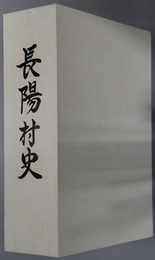 長陽村史